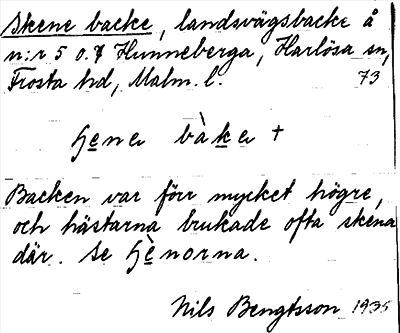 Skene backe, landsvägsbacke å
n:r 5 o. 7 Hunneberga, Harlösa sn,
Frosta hd, Malm. l. 73
ɧene bàke +
Backen var förr mycket högre,
och hästarna brukade ofta skena
där. Se ɧènorna.
Nils Bengtsson 1935